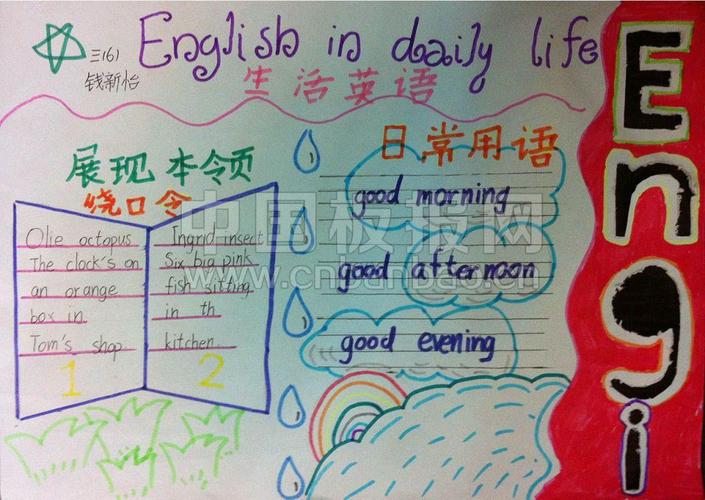 English in daily life
三(6)
钱新怡
生活英语
展现本令页
绕口令
Olie octopus
The clock's on
an orange
box in
Tom's shop
1
Ingrid insect
Six big pink
fish sitting
in th
kitchen
2
日常用语
good morning
good afternoon
good evening
Engi
中国板报网
www.cnbanbao.cn